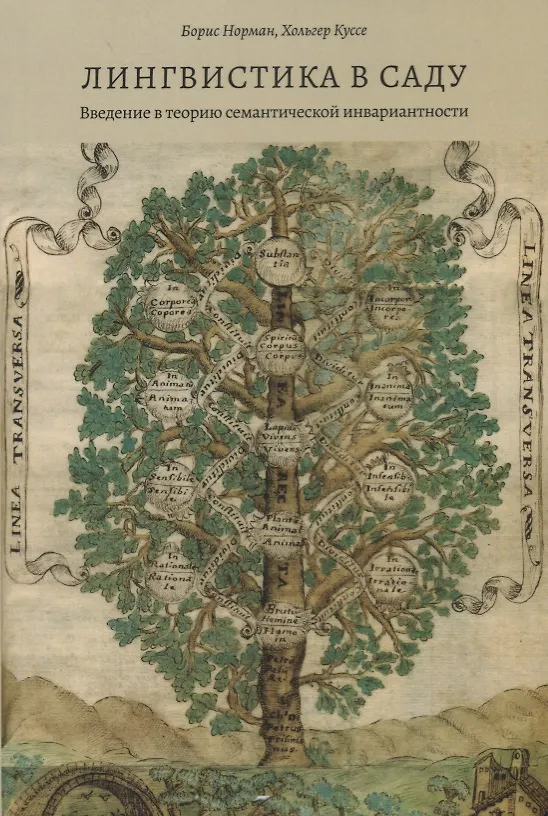 Борис Норман, Хольгер Куссе
ЛИНГВИСТИКА В САДУ
Введение в теорию семантической инвариантности
LINEA TRANSVERSA
LINEA TRANSVERSA
Substan
tia
In
Corporea
Coporea
In
Incorpor
Incorpo
rea
Spiritu
Corpus
Corpus
In
Animatu
Animatum
In
Inanima
Inanima
tum
Lapis
Vivens
Vivens
In
Sensibile
Sensibi
le
In
Insensibi
Insensibi
le
Planta
Animal
Animal
In
Rationale
Rationa
le
In
Irrationa
Irrationa
le
Brutu
Homine
Homo
In
Petrus